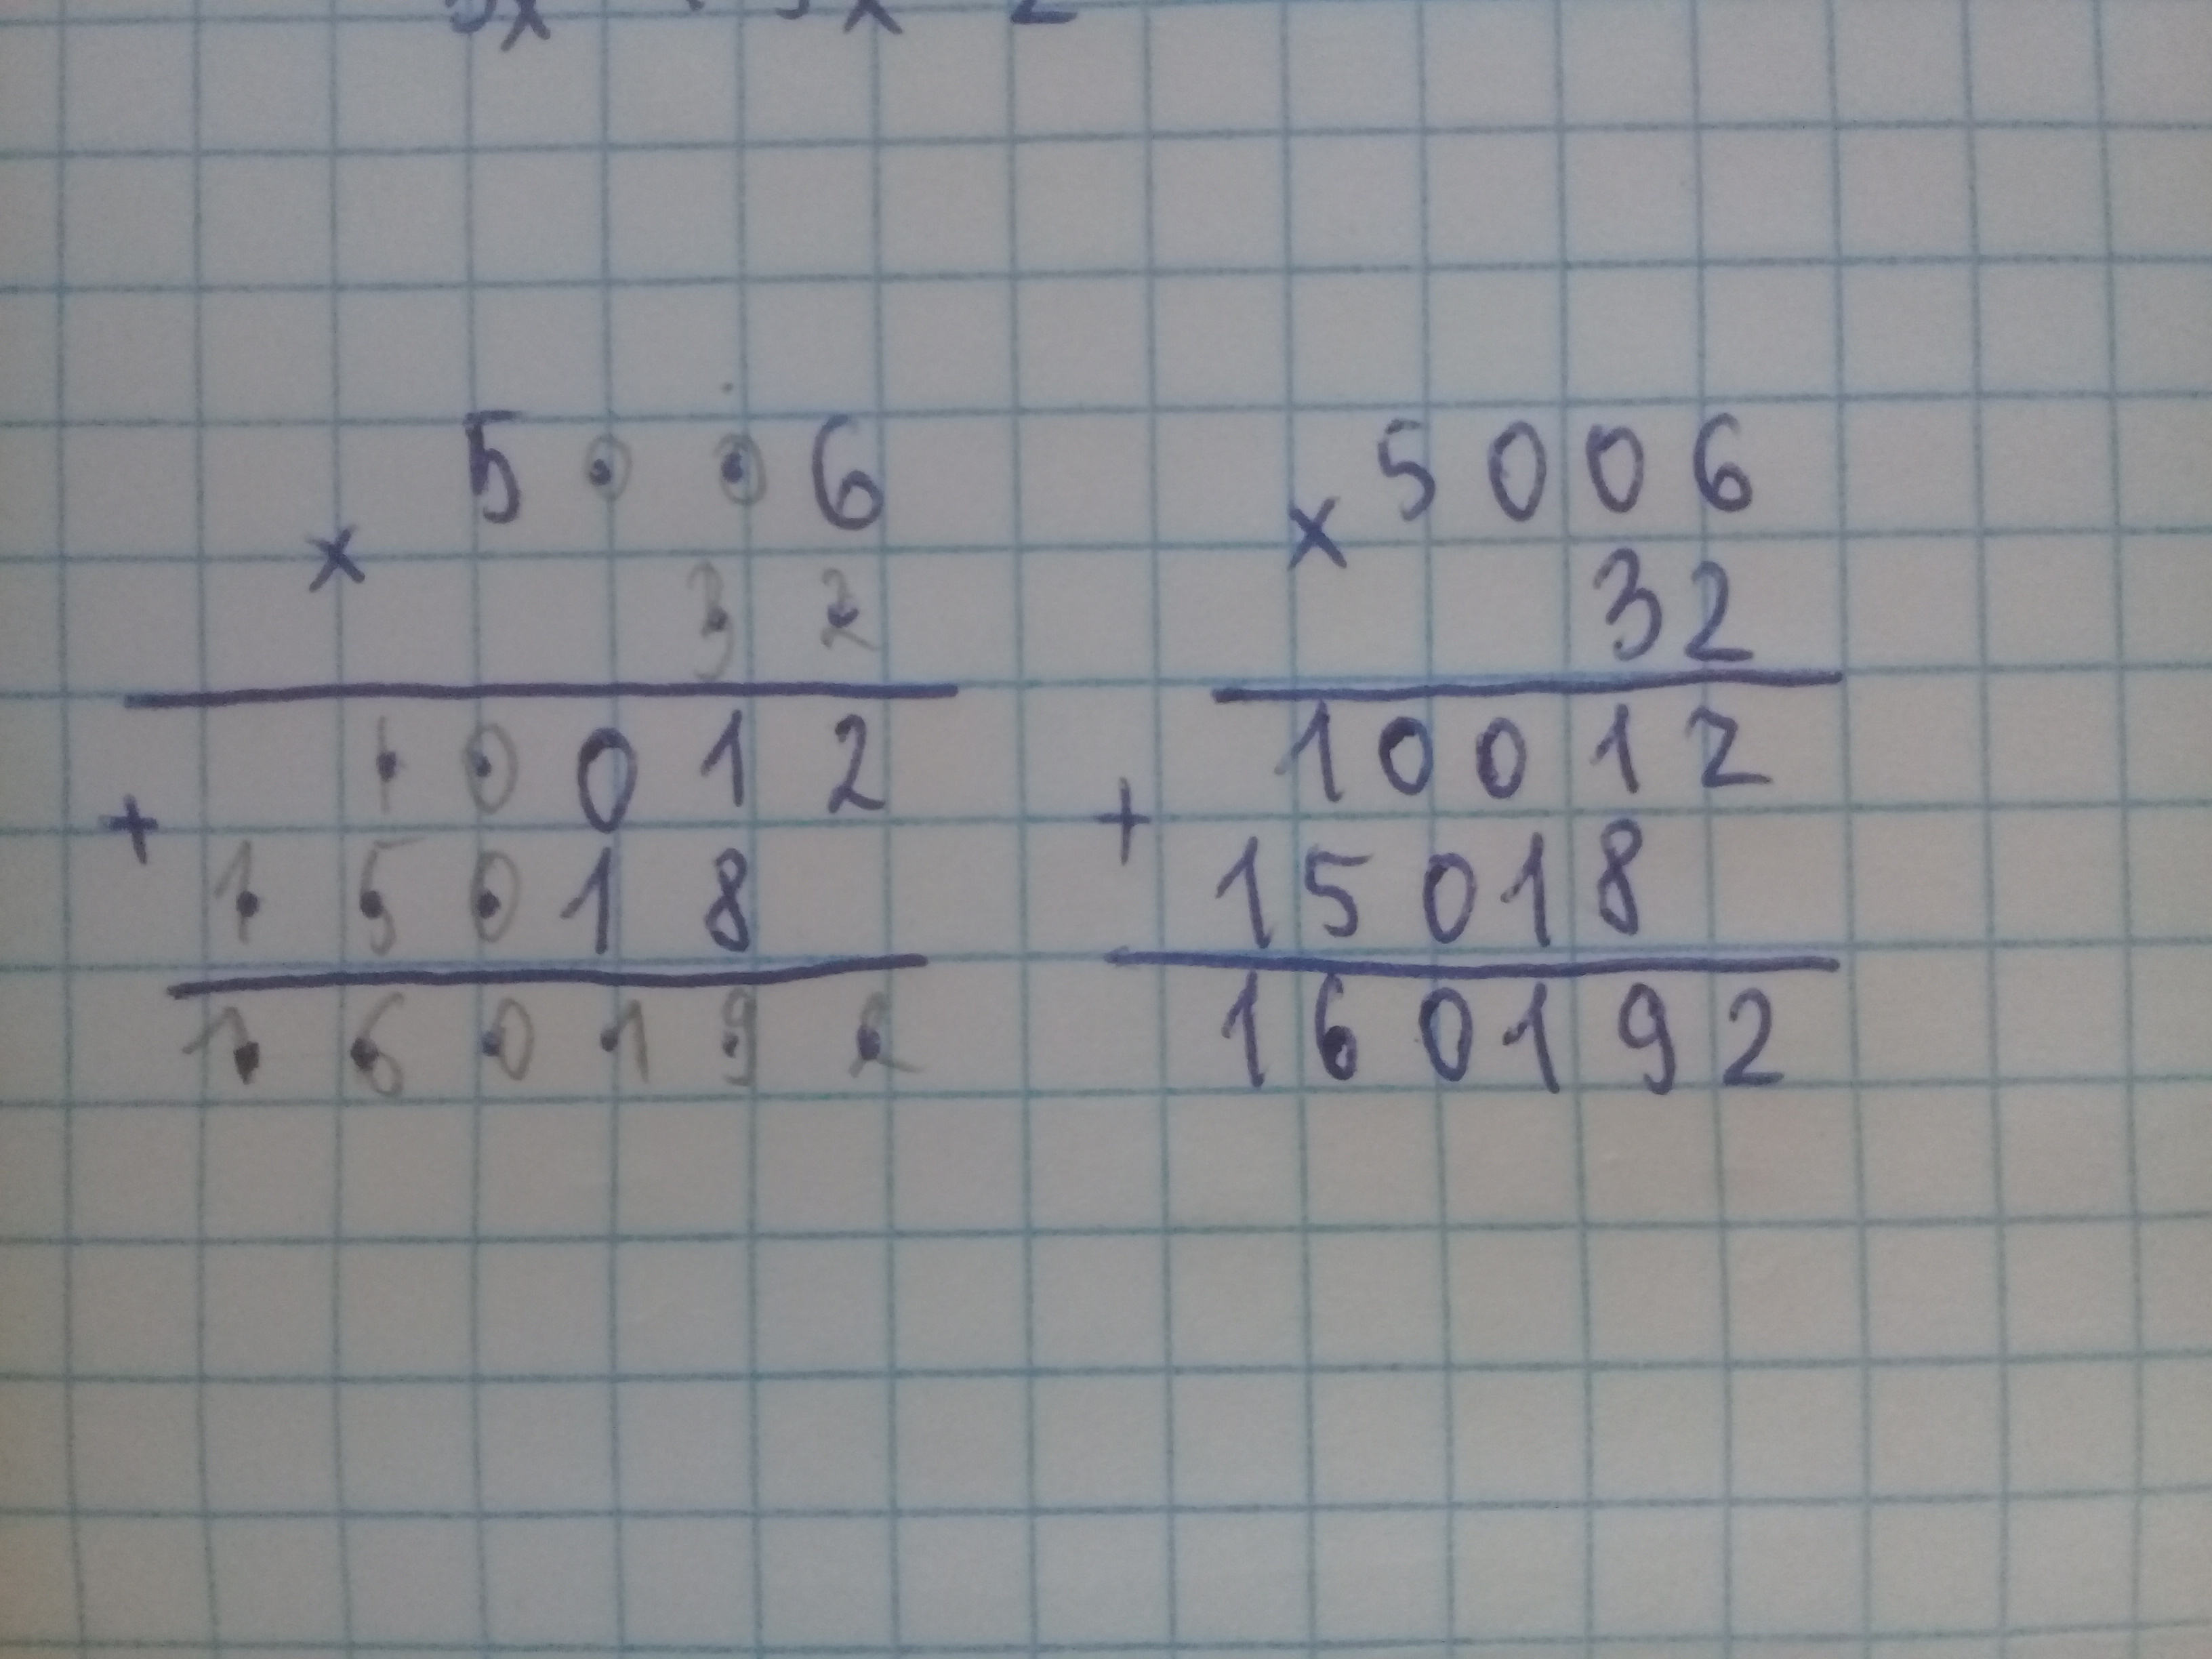 5 0 0 6
×
3 2
1 0 0 1 2
+
1 5 0 1 8
1 6 0 1 9 2
5 0 0 6
×
3 2
1 0 0 1 2
+
1 5 0 1 8
1 6 0 1 9 2